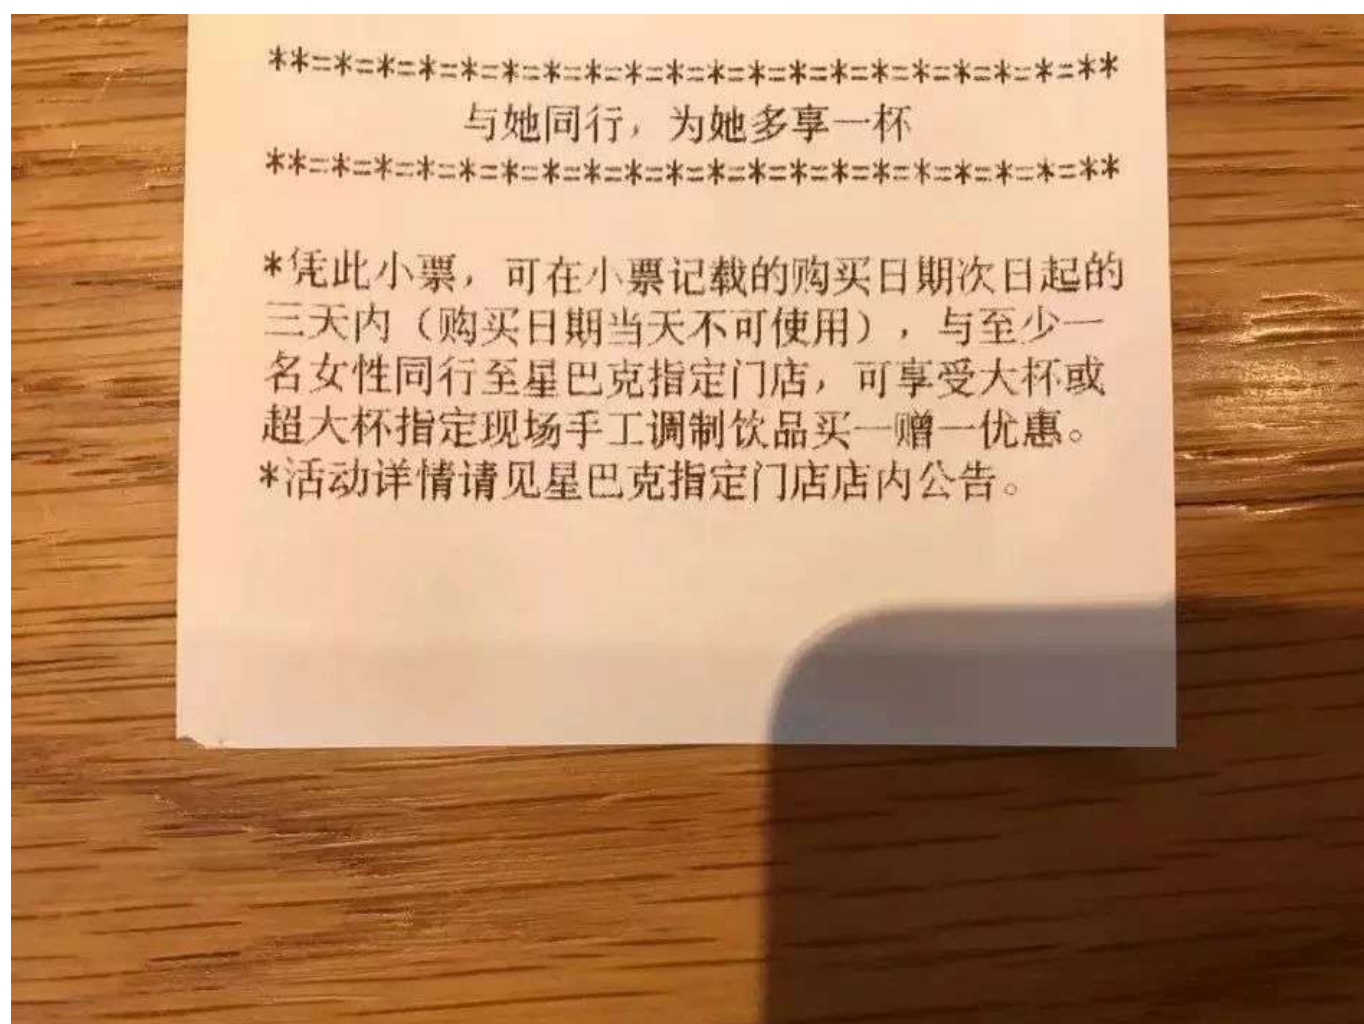 **=*=*=*=*=*=*=*=*=*=*=*=*=*=*=*=*=*=*=**
与她同行，为她多享一杯
**=*=*=*=*=*=*=*=*=*=*=*=*=*=*=*=*=*=*=**
*凭此小票，可在小票记载的购买日期次日起的
三天内（购买日期当天不可使用），与至少一
名女性同行至星巴克指定门店，可享受大杯或
超大杯指定现场手工调制饮品买一赠一优惠。
*活动详情请见星巴克指定门店店内公告。